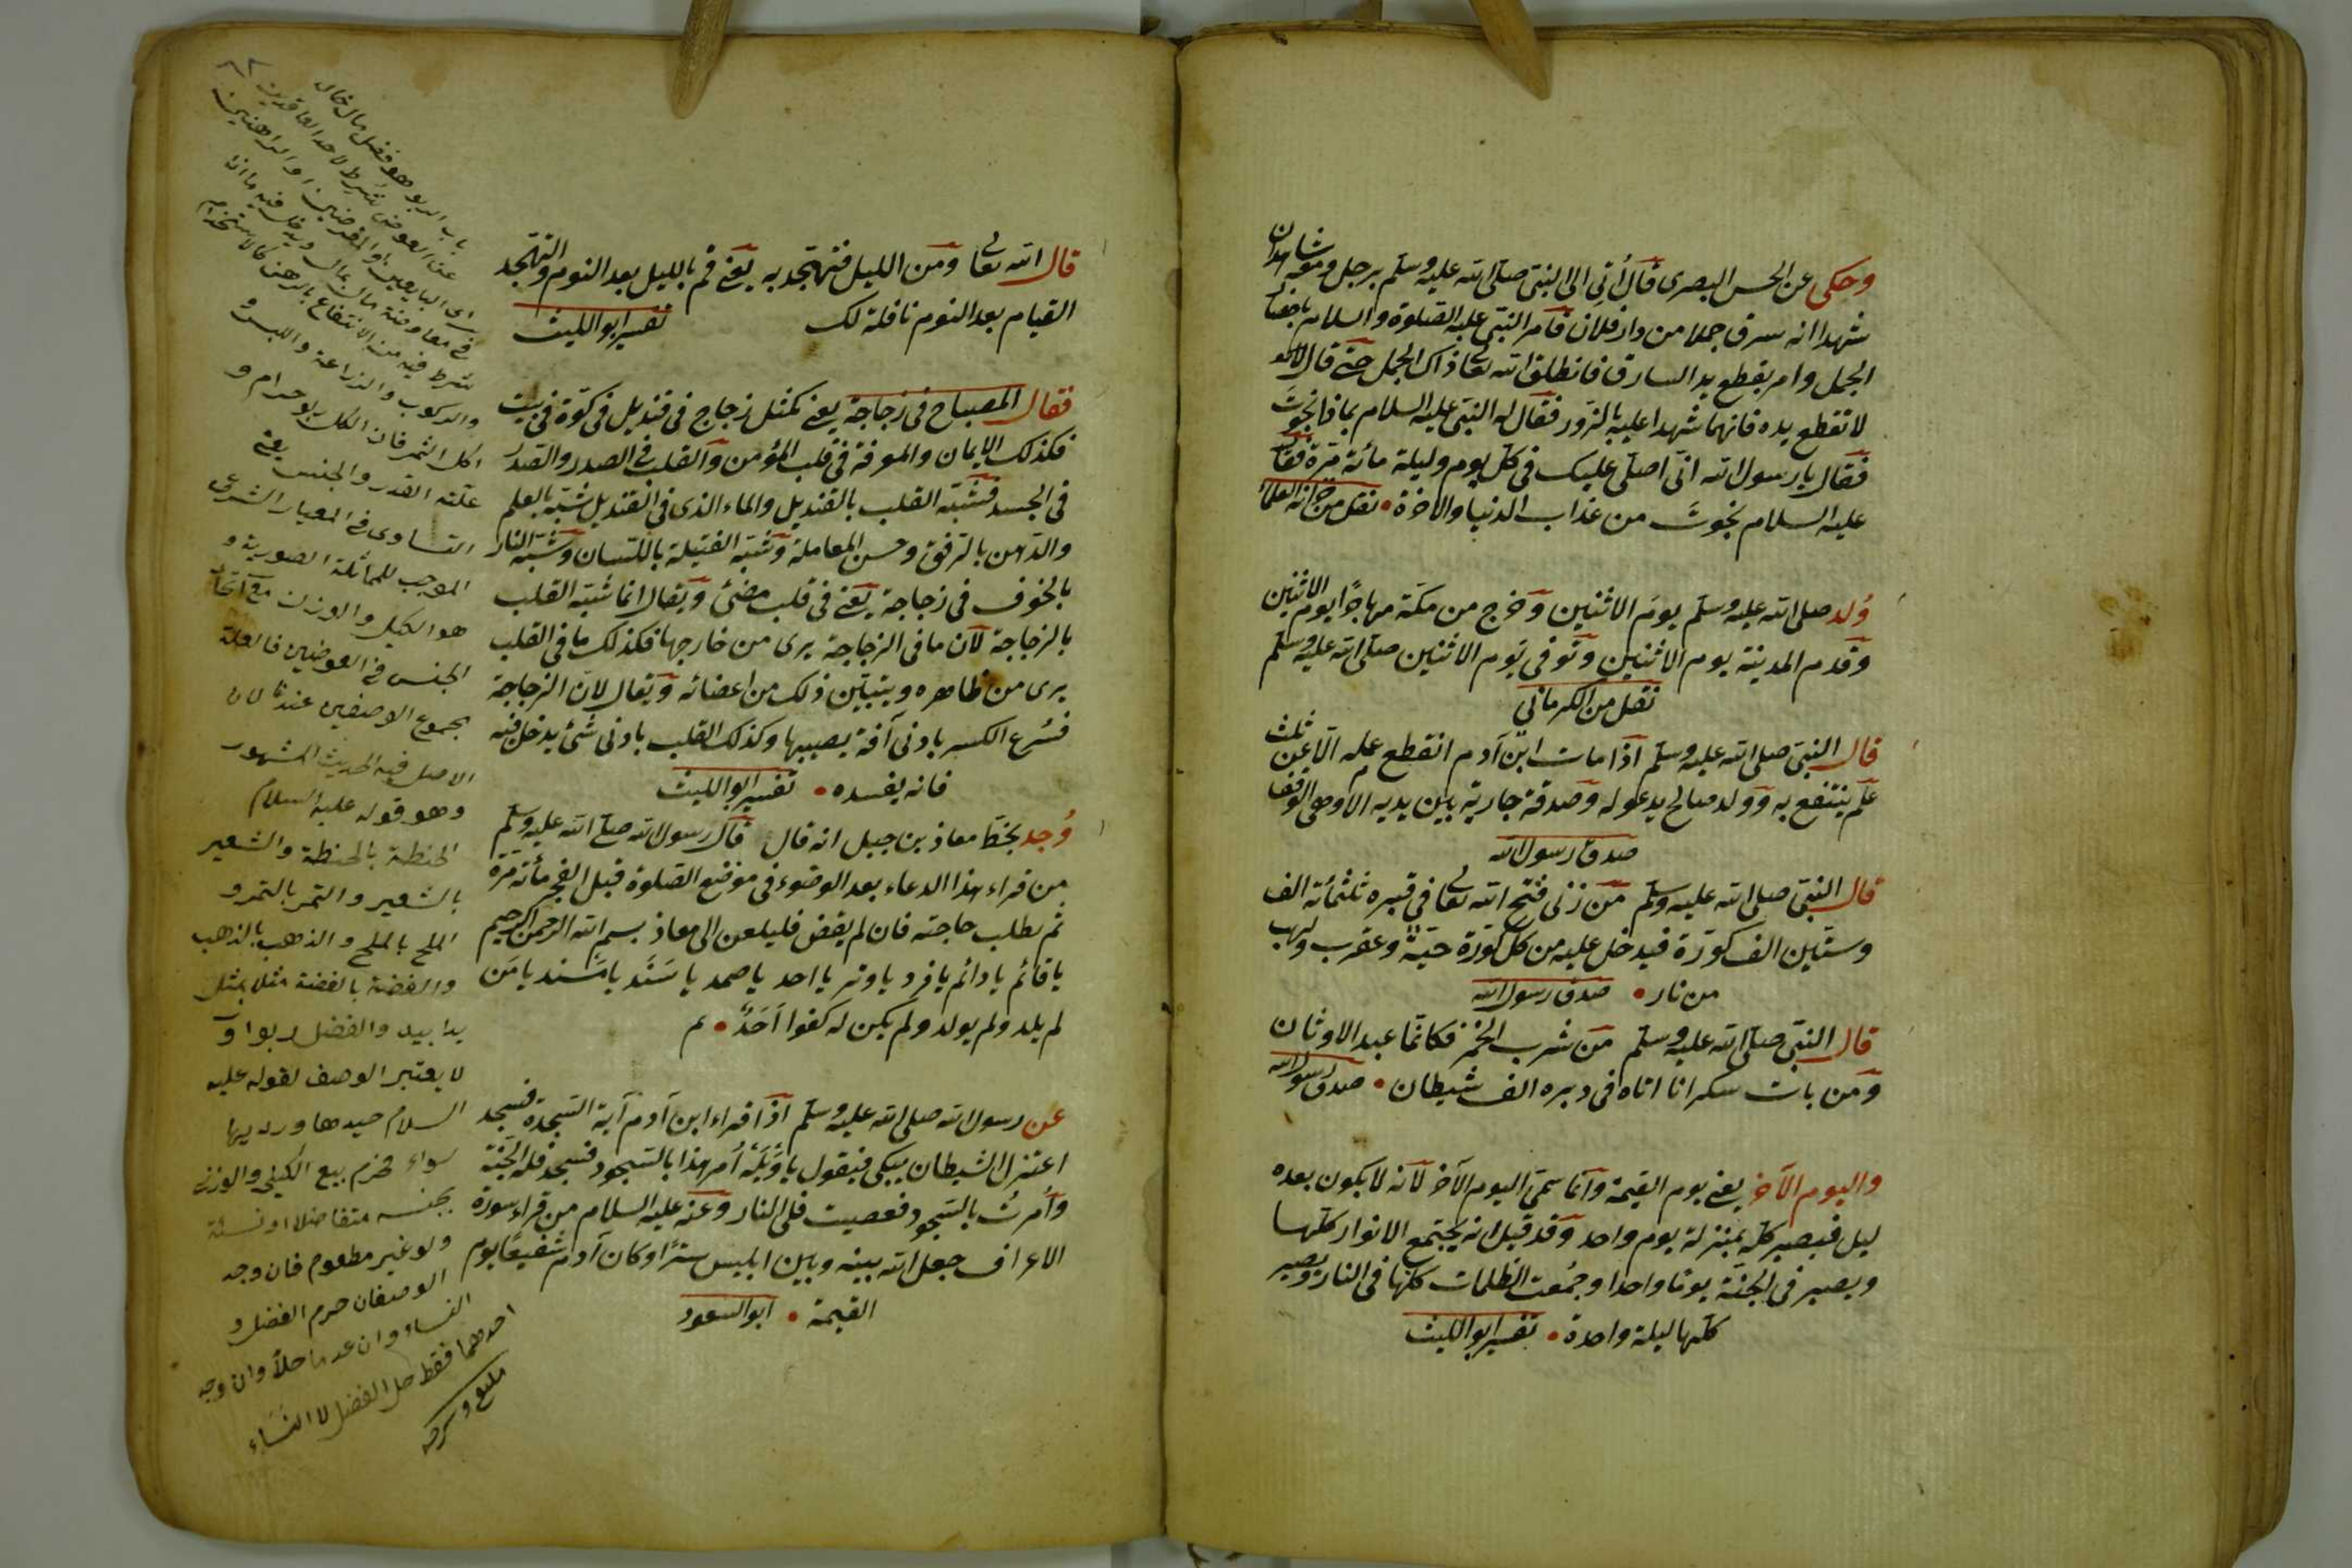 وحكى عن الحسن البصرى قال أتى الى النبى صلى الله عليه وسلم برجل ومعه شاهدان
شهدا انه سرق جملا من دار فلان فامر النبى عليه الصلوة والسلام باحضار
الجمل وامر بقطع يد السارق فانطلق الله تعالى ذاك الجمل حتى قال
لا تقطع يده فانهما شهدا عليه بالزور فقال له النبى عليه السلام بماذا نجوت
فقال يا رسول الله انى اصلى عليك فى كل يوم وليلة مائة مرة فقال
عليه السلام نجوت من عذاب الدنيا والاخرة • نقل من خزانة العلماء
ولد صلى الله عليه وسلم يوم الاثنين وخرج من مكة مهاجرا يوم الاثنين
وقدم المدينة يوم الاثنين وتوفى يوم الاثنين صلى الله عليه وسلم
نقل من الكرمانى
قال النبى صلى الله عليه وسلم اذا مات ابن آدم انقطع عمله الا عن ثلث
علم ينتفع به وولد صالح يدعو له وصدقة جارية بين يديه
صدق رسول الله
قال النبى صلى الله عليه وسلم من زنى فتح الله تعالى فى قبره ثلثمائة الف
وستين الف كورة فيدخل عليه من كل كورة حية وعقرب ولهب
من نار • صدق رسول الله
قال النبى صلى الله عليه وسلم من شرب الخمر فكانما عبد الاوثان
ومن بات سكرانا اتاه فى دبره الف شيطان • صدق رسول الله
واليوم الآخر يعنى يوم القيمة وانما سمى اليوم الآخر لانه لا يكون بعده
ليل فيصير كله بمنزلة يوم واحد وقد قيل انه يجتمع الانوار كلها
ويصير فى الجنة يوما واحدا وجمعت الظلمات كلها فى النار ويصير
كلها ليلة واحدة • تفسير ابو الليث
قال الله تعالى ومن الليل فتهجد به يعنى قم بالليل بعد النوم والتهجد
القيام بعد النوم نافلة لك تفسير ابو الليث
فقال المصباح فى زجاجة يعنى كمثل زجاج فى قنديل فى كوة فى بيت
فكذلك الايمان والمعرفة فى قلب المؤمن والقلب فى الصدر والصدر
فى الجسد فشبه القلب بالقنديل والماء الذى فى القنديل شبه بالعلم
والدهن بالرفق وحسن المعاملة وشبه الفتيلة باللسان وشبه النار
بالخوف فى زجاجة يعنى فى قلب مضئ ويقال انما شبه القلب
بالزجاجة لان ما فى الزجاجة يرى من خارجها فكذلك ما فى القلب
يرى من ظاهره ويتبين ذلك من اعضائه ويقال لان الزجاجة
فسرع الكسر بادنى آفة يصيبها وكذلك القلب بادنى شئ يدخل فيه
فانه يفسده • تفسير ابو الليث
وجد بخط معاذ بن جبل انه قال قال رسول الله صلى الله عليه وسلم
من قراء هذا الدعاء بعد الوضوء فى موضع الصلوة قبل الفجر مائة مرة
ثم يطلب حاجته فان لم يقض فليلعن الى معاذ بسم الله الرحمن الرحيم
يا قائم يا دائم يا فرد يا وتر يا احد يا صمد يا سند يا مسند يا من
لم يلد ولم يولد ولم يكن له كفوا احد • م
عن رسول الله صلى الله عليه وسلم اذا قراء ابن آدم آية السجدة فسجد
اعتزل الشيطان يبكى فيقول يا ويله أمر هذا بالسجود فسجد فله الجنة
وأمرت بالسجود فعصيت فلى النار وعنه عليه السلام من قراء سورة
الاعراف جعل الله بينه وبين ابليس سترا وكان آدم شفيعا يوم
القيمة • ابو السعود
باب الربو هو فضل مال خال
عن العوض شرط لاحد العاقدين
فى معاوضة مال بمال
شرط فيه من الانتفاع بالرهن كالاستخدام
والركوب والزراعة واللبس و
اكل الثمر فان الكل ربو حرام و
علته القدر والجنس يعنى
التساوى فى المعيار الشرعى
الموجب للمماثلة الصورية و
هو الكيل والوزن مع اتحاد
الجنس فى العوضين فالعلة
مجموع الوصفين عندنا لان
الاصل فيه الحديث المشهور
وهو قوله عليه السلام
الحنطة بالحنطة والشعير
بالشعير والتمر بالتمر و
الملح بالملح والذهب بالذهب
والفضة بالفضة مثلا بمثل
يدا بيد والفضل ربوا و
لا يعتبر الوصف لقوله عليه
السلام جيدها ورديها
سواء فحرم بيع الكيلى والوزنى
بجنسه متفاضلا او نسئة
ولو غير مطعوم فان وجد
الوصفان حرم الفضل و
النساء وان عدما حلا وان وجد
احدهما فقط حل الفضل لا النساء